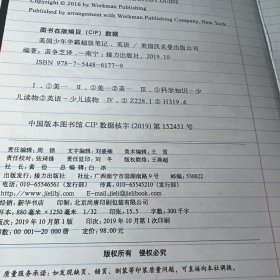 STUDY GUIDE
Copyright © 2016 by Workman Publishing
Published by arrangement with Workman Publishing Company, New York.
图书在版编目（CIP）数据
美国少年学霸超级笔记. 英语 / 美国沃克曼出版公司
编著；孟争芝译. —南宁：接力出版社，2019.10
ISBN 978-7-5448-6177-9
Ⅰ. ①美… Ⅱ. ①美… Ⅲ. ①科学知识－少
儿读物②英语－少儿读物 Ⅳ. ①Z228.1②H319.4
中国版本图书馆CIP数据核字（2019）第152451号
责任编辑：周锦 文字编辑：刘盛楠 美术编辑：王雪
责任校对：张琦锋 责任监印：刘冬 版权联络：王燕超
社长：黄俭 总编辑：白冰
出版发行：接力出版社 社址：广西南宁市园湖南路9号 邮编：530022
电话：010-65546561（发行部） 传真：010-65545210（发行部）
http://www.jielibj.com E-mail:jieli@jielibook.com
经销：新华书店 印制：北京尚唐印刷包装有限公司
开本：880毫米×1250毫米 1/32 印张：15.5 字数：300千字
版次：2019年10月第1版 印次：2019年10月第1次印刷
印数：00 001—20 000册 定价：98.00元
版权所有 侵权必究
质量服务承诺：如发现缺页、错页、倒装等印装质量问题，可直接向本社调换。